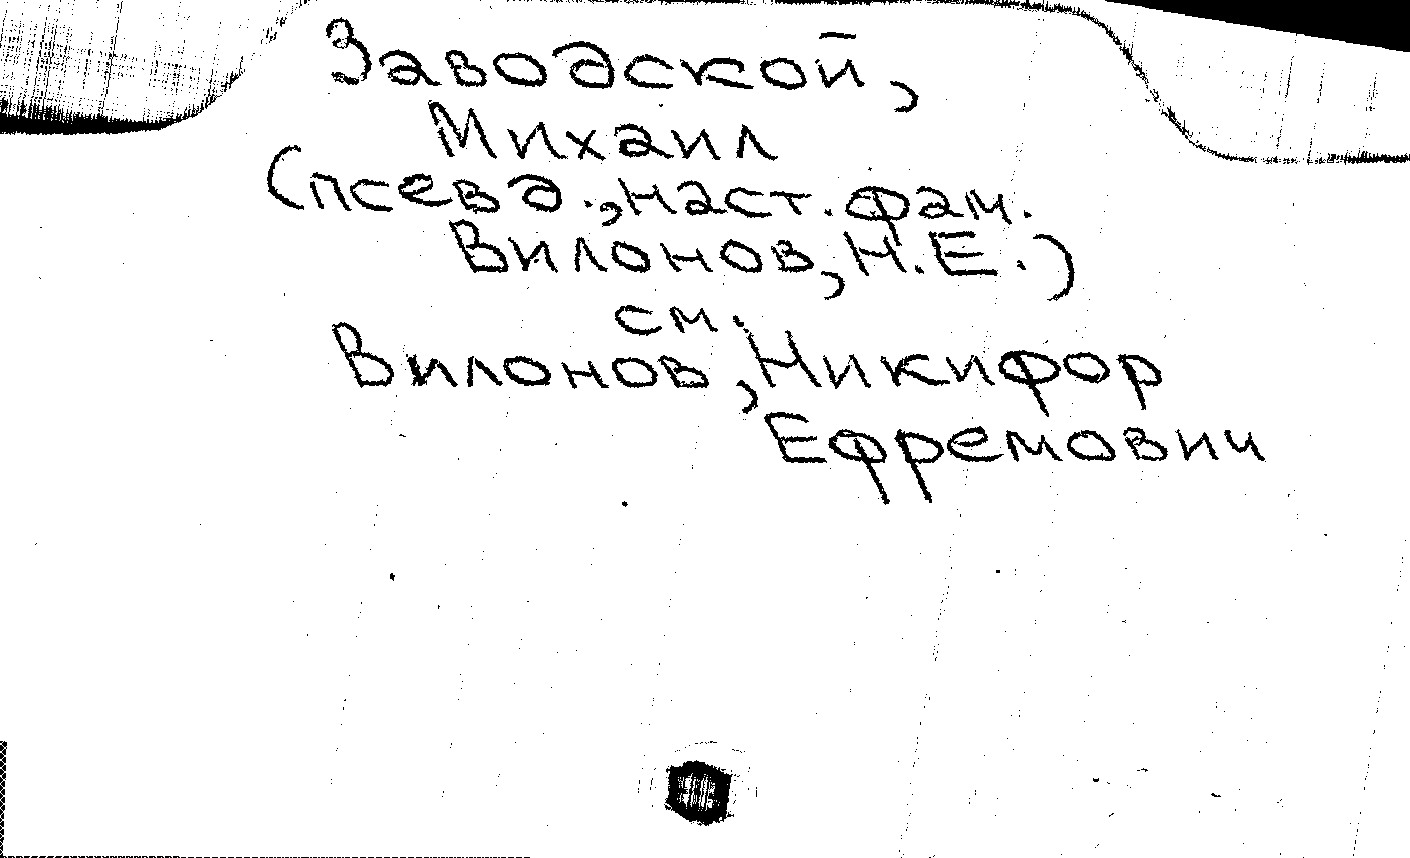 Заводской,
Михаил
(псевд., наст. фам.
Вилонов, Н.Е.)
см.
Вилонов, Никифор
Ефремович